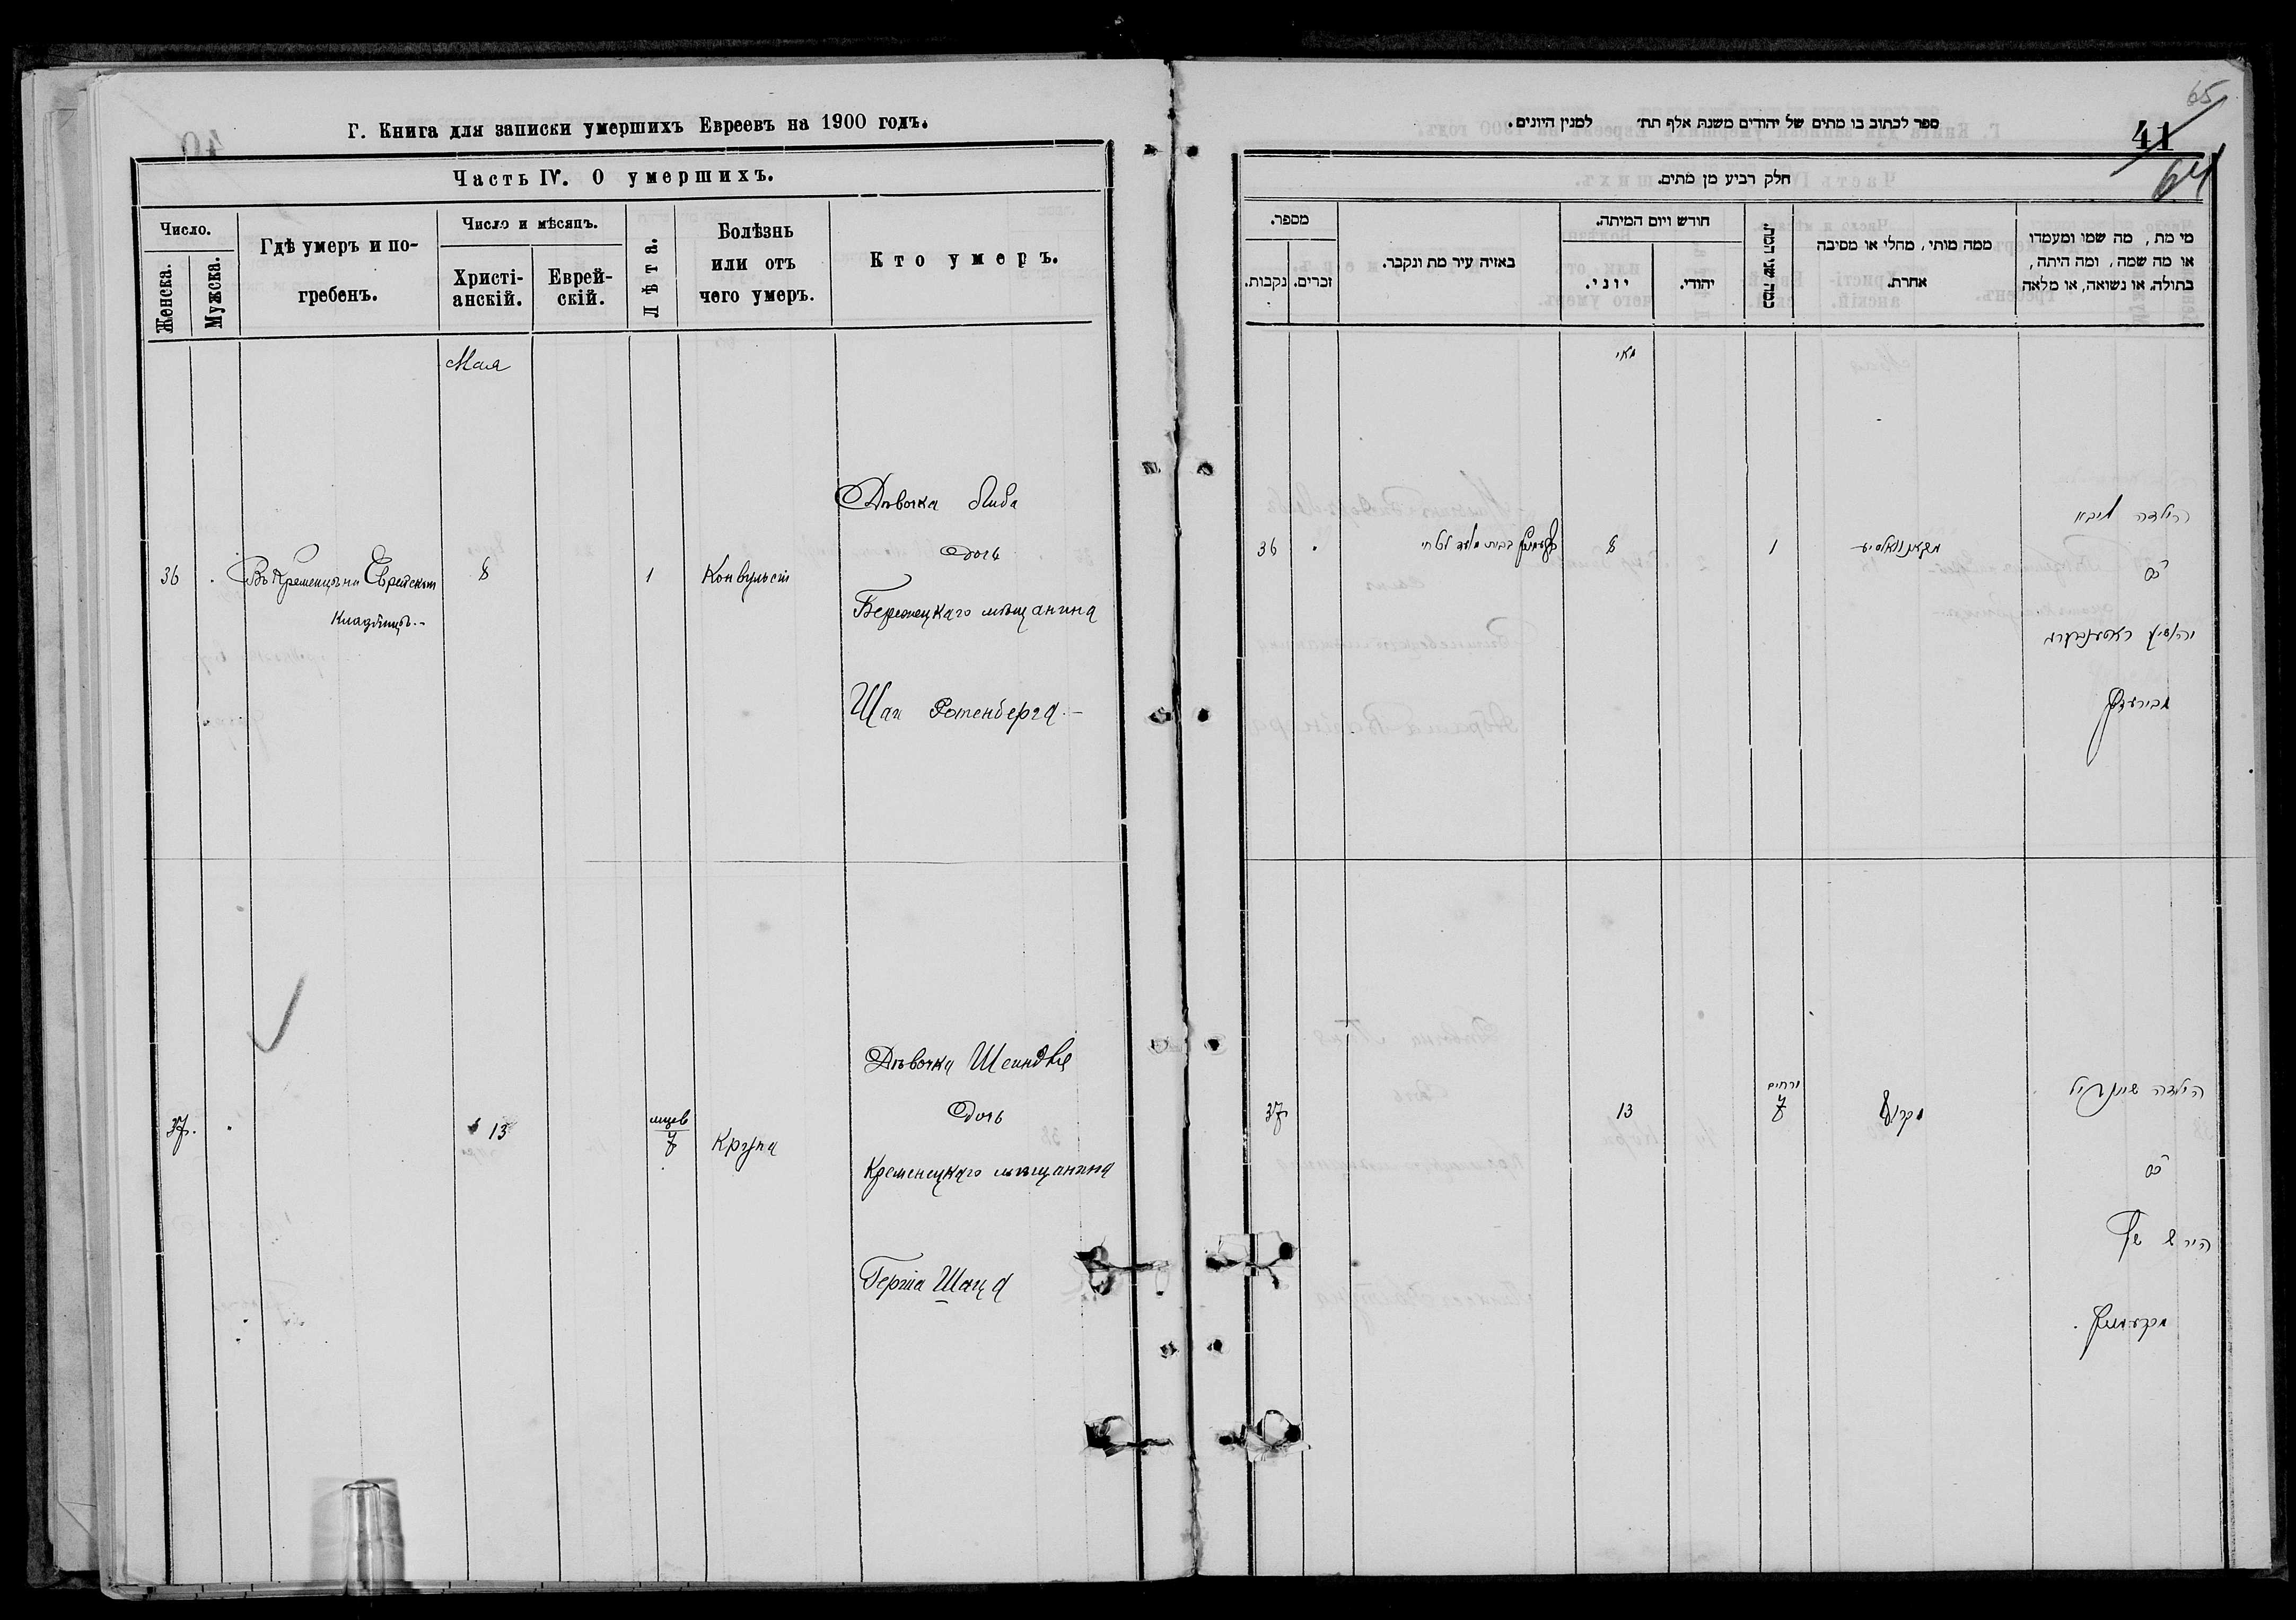 Г. Книга для записки умершихъ Евреевъ на 1900 годъ.
Часть IV. О умершихъ.
Число.
Женска.
Мужска.
Гдѣ умеръ и по-
гребенъ.
Число и мѣсяцъ.
Христі-
анскій.
Еврей-
скій.
Лѣта.
Болѣзнь
или отъ
чего умеръ.
Кто умеръ.
Мая
36
Въ Кременцѣ на Еврейскомъ
Кладбищѣ.-
8
1
Конвульсіи
Дѣвочка Либа
дочь
Бережецкаго мѣщанина
Шаи Ротенберга.-
37.
13
мцев
7
Крупа
Дѣвочка Шейндля
дочь
Кременецкаго мѣщанина
Герша Шаца
65
ספר לכתוב בו מתים של יהודים משנת אלף תת׳ למנין היונים.
41
64
חלק רביע מן מתים.
מספר.
נקבות.
זכרים.
באזיה עיר מת ונקבר.
חודש ויום המיתה.
יוני.
יהודי.
כמה שני המת.
ממה מותי, מחלי או מסיבה
אחרת.
מי מת, מה שמו ומעמדו
או מה שמה, ומה היתה,
בתולה. או נשואה, או מלאה
מאי
36
8
1
הילדה ליבא
37
13
ירחים
7
הילדה שיינדיל
הירש שץ